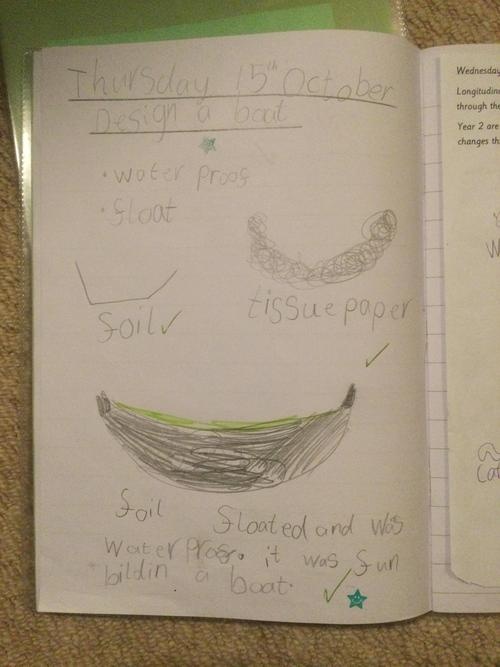 Thursday 15th October
Design a boat
• water proof
• float
foil
tissue paper
foil floated and was
water proof. it was fun
bildin a boat.
Wednesday
Longitudin
through the
Year 2 are
changes th
W
Cat